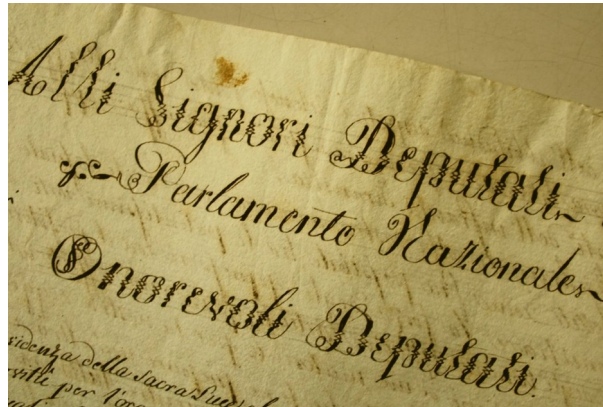 Alli Signori Deputati
Parlamento Nazionale
Onorevoli Deputati
della Sacra
per